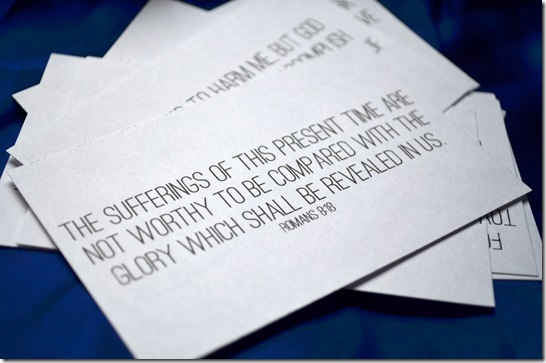 THE SUFFERINGS OF THIS PRESENT TIME ARE
NOT WORTHY TO BE COMPARED WITH THE
GLORY WHICH SHALL BE REVEALED IN US.
ROMANS 8:18
TO HARM ME, BUT GOD